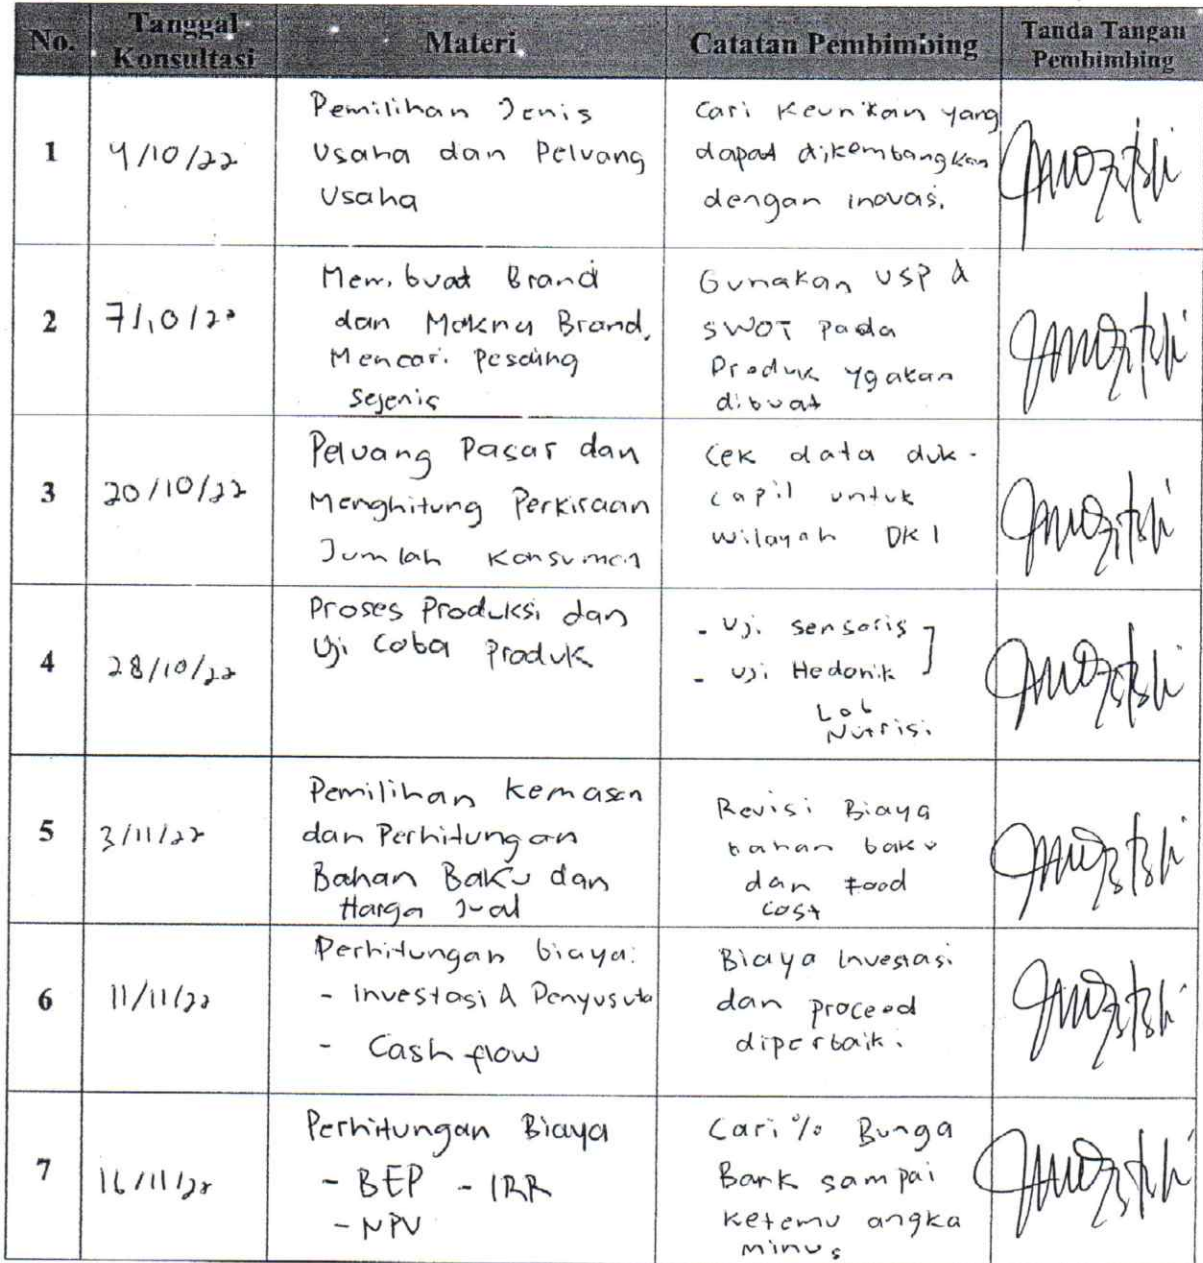 No.
Tanggal Konsultasi
Materi
Catatan Pembimbing
Tanda Tangan Pembimbing
1
4/10/22
Pemilihan Jenis
Usaha dan Peluang
Usaha
Cari Keunikan yang
dapat dikembangkan
dengan inovasi.
2
7/10/22
Membuat Brand
dan Makna Brand.
Mencari Pesaing
Sejenis
Gunakan USP &
SWOT pada
Produk yg akan
dibuat
3
20/10/22
Peluang Pasar dan
Menghitung Perkiraan
Jumlah Konsumen
Cek data duk-
capil untuk
wilayah DKI
4
28/10/22
Proses Produksi dan
Uji Coba Produk
- Uji Sensoris
- Uji Hedonik
Lab
Nutrisi.
5
3/11/22
Pemilihan Kemasan
dan Perhitungan
Bahan Baku dan
Harga Jual
Revisi Biaya
bahan baku
dan food
cost
6
11/11/22
Perhitungan biaya:
- Investasi & Penyusuta
- Cash flow
Biaya Investasi
dan proceed
diperbaiki.
7
16/11/22
Perhitungan Biaya
- BEP - IRR
- NPV
Cari % Bunga
Bank sampai
ketemu angka
minus